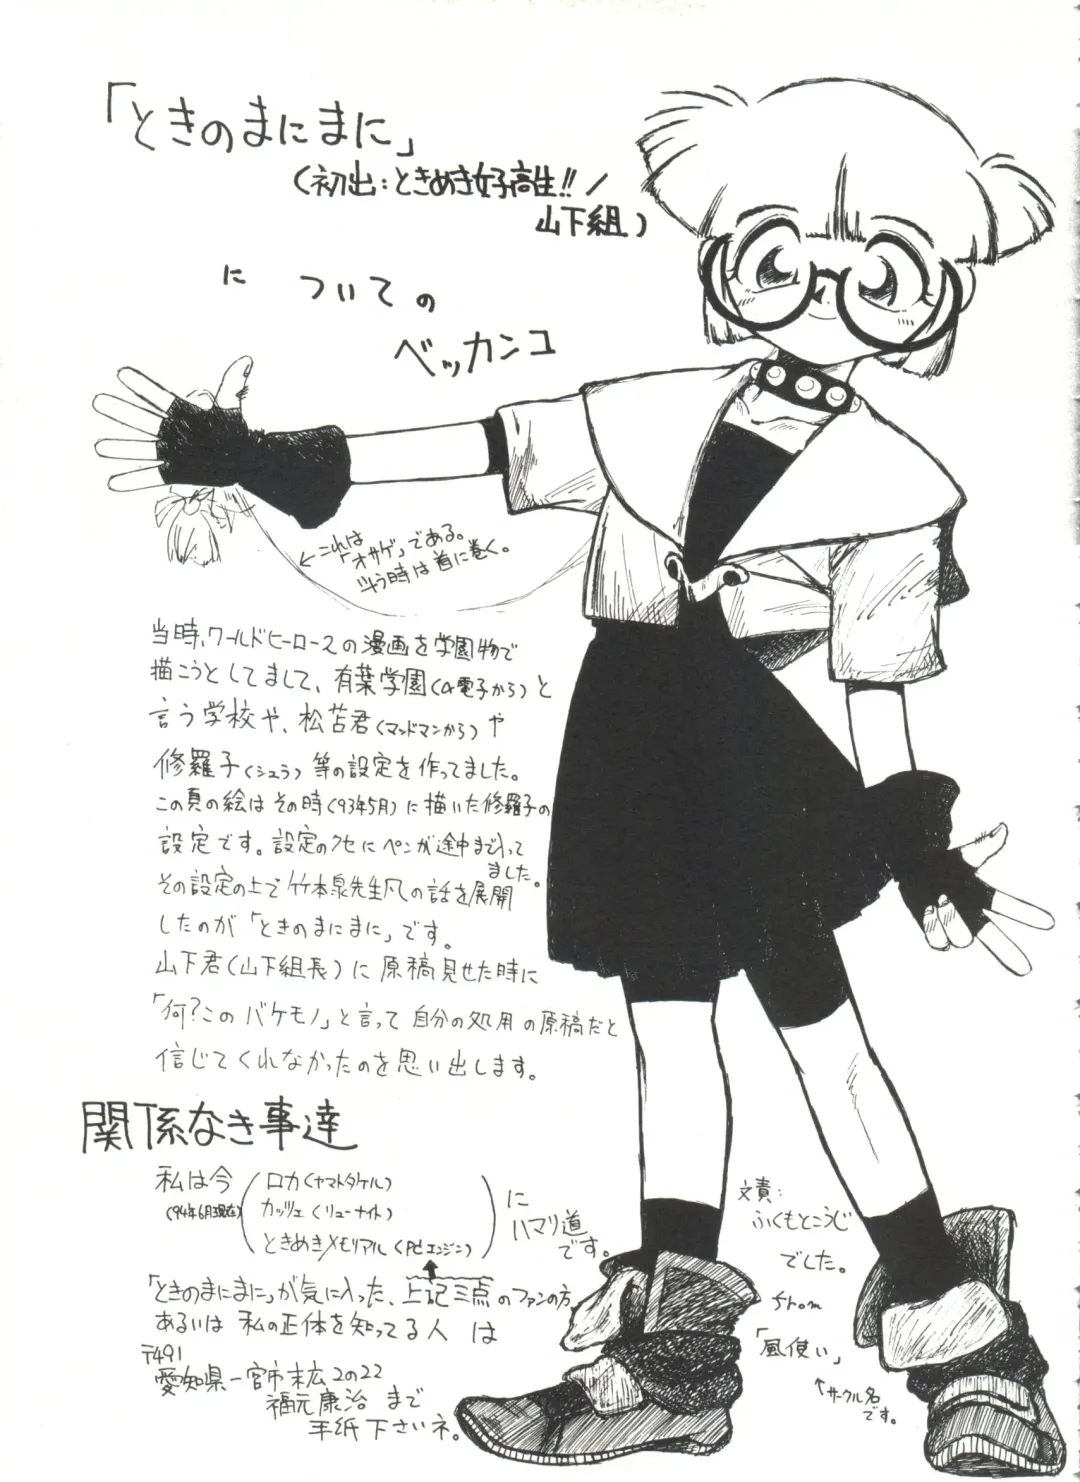 「ときのまにまに」
(初出:ときめき好高生!!/
山下組)
に ついての
ベッカンコ
←これは
「オサゲ」である。
斗う時は首に巻く。
当時、ワールドヒーロースの漫画を学園物で
描こうとしてまして、有葉学園(α電子から)と
言う学校や、松苫君(マッドマンから)や
修羅子(シュラ)等の設定を作ってました。
この頁の絵はその時(93年5月)に描いた修羅子の
設定です。設定のクセにペンが途中まで入って
ました。
その設定の上で竹本泉先生風の話を展開
したのが「ときのまにまに」です。
山下君(山下組長)に原稿見せた時に
「何?このバケモノ」と言って自分の処用の原稿だと
信じてくれなかったのを思い出します。
関係なき事達
私は今
(94年6月現在)
ロカ(ヤマトタケル)
カッツェ(リューナイト)
ときめきメモリアル(PCエンジン)
に
ハマリ道
です。
「ときのまにまに」が気に入った、上記三点のファンの方、
あるいは 私の正体を知ってる人 は
〒491
愛知県一宮市末広2の22
福元康治 まで
手紙下さいネ。
文責:
ふくもとこうじ
でした。
from
「風使い」
↑サークル名
です。